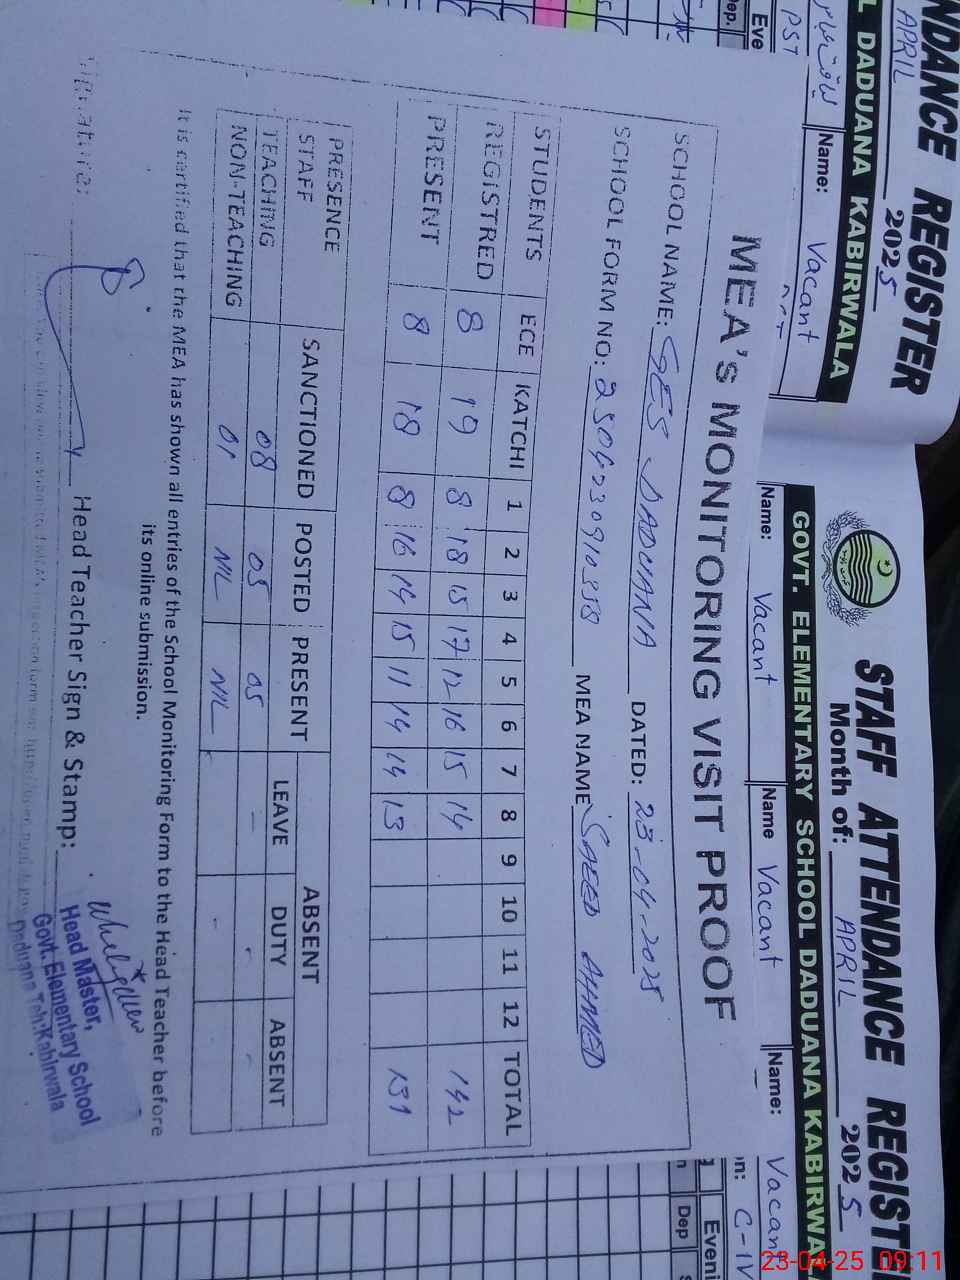 NDANCE REGISTER
APRIL 2025
L DADUANA KABIRWALA
Name: Vacant
PST
Eve
Dep.
STAFF ATTENDANCE REGIST
Month of: APRIL 2025
GOVT. ELEMENTARY SCHOOL DADUANA KABIRWA
Name: Vacant Name Vacant Name: Vacant
C-IV
Eveni
Dep
MEA'S MONITORING VISIT PROOF
SCHOOL NAME: GES DADUANA DATED: 23-04-2025
SCHOOL FORM NO: MEA NAME SAEED AHMED
STUDENTS ECE KATCHI 1 2 3 4 5 6 7 8 9 10 11 12 TOTAL
REGISTRED 8 19 8 18 15 17 12 16 15 14 142
PRESENT 8 18 8 16 14 15 11 14 14 13 131
PRESENCE STAFF SANCTIONED POSTED PRESENT ABSENT
LEAVE DUTY ABSENT
TEACHING 08 05 05 - - -
NON-TEACHING 01 NIL NIL - -
It is certified that the MEA has shown all entries of the School Monitoring Form to the Head Teacher before
its online submission.
Signature: Head Teacher Sign & Stamp:
Head Master,
Govt. Elementary School
Daduana Teh: Kabirwala
23-04-25 09:11